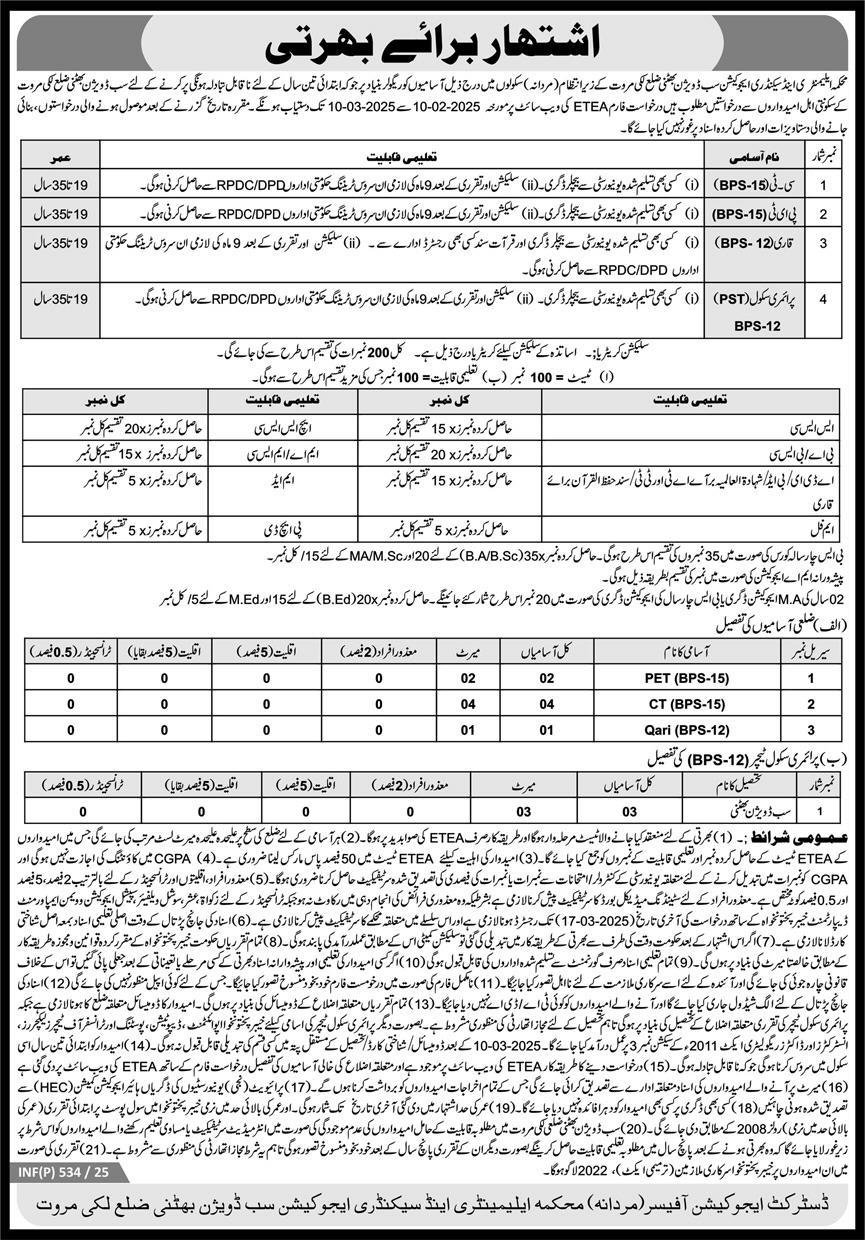 اشتہار برائے بھرتی
محکمہ ایلیمنٹری اینڈ سیکنڈری ایجوکیشن سب ڈویژن بھٹنی ضلع لکی مروت کے زیر انتظام (مردانہ) سکولوں میں درج ذیل آسامیوں کو ریگولر بنیاد پر جو کہ ابتدائی تین سال کے لئے ناقابل تبادلہ ہونگی پر کرنے کے لئے سب ڈویژن بھٹنی ضلع لکی مروت
کے سکونتی اہل امیدواروں سے درخواستیں مطلوب ہیں درخواست فارم ETEA کی ویب سائٹ پر مورخہ 2025-02-10 سے 2025-03-10 تک دستیاب ہونگے۔ مقررہ تاریخ گزرنے کے بعد موصول ہونے والی درخواستوں، بنائی
جانے والی دستاویزات اور حاصل کردہ اسناد پر غور نہیں کیا جائے گا۔
نمبر شمار نام آسامی تعلیمی قابلیت عمر
1 سی۔ٹی (BPS-15) (i) کسی بھی تسلیم شدہ یونیورسٹی سے بیچلر ڈگری۔ (ii) سلیکشن اور تقرری کے بعد 9 ماہ کی لازمی ان سروس ٹریننگ حکومتی اداروں RPDC/DPD سے حاصل کرنی ہوگی۔ 19 تا 35 سال
2 پی ای ٹی (BPS-15) (i) کسی بھی تسلیم شدہ یونیورسٹی سے بیچلر ڈگری۔ (ii) سلیکشن اور تقرری کے بعد 9 ماہ کی لازمی ان سروس ٹریننگ حکومتی اداروں RPDC/DPD سے حاصل کرنی ہوگی۔ 19 تا 35 سال
3 قاری (BPS- 12) (i) کسی بھی تسلیم شدہ یونیورسٹی سے بیچلر ڈگری اور قرآت سند کسی بھی رجسٹرڈ ادارے سے ۔ (ii) سلیکشن اور تقرری کے بعد 9 ماہ کی لازمی ان سروس ٹریننگ حکومتی 19 تا 35 سال
اداروں RPDC/DPD سے حاصل کرنی ہوگی۔
4 پرائمری سکول (PST) (i) کسی بھی تسلیم شدہ یونیورسٹی سے بیچلر ڈگری۔ (ii) سلیکشن اور تقرری کے بعد 9 ماہ کی لازمی ان سروس ٹریننگ حکومتی اداروں RPDC/DPD سے حاصل کرنی ہوگی۔ 19 تا 35 سال
BPS-12
سلیکشن کریٹریا:۔ اساتذہ کے سلیکشن کیلئے کریٹریا درج ذیل ہے۔ کل 200 نمبرات کی تقسیم اس طرح سے کی جائے گی۔
(ا) ٹیسٹ = 100 نمبر (ب) تعلیمی قابلیت = 100 نمبر جس کی مزید تقسیم اس طرح سے ہوگی۔
تعلیمی قابلیت کل نمبر تعلیمی قابلیت کل نمبر
ایس ایس سی حاصل کردہ نمبرز x 15 تقسیم کل نمبر ایچ ایس ایس سی حاصل کردہ نمبرز x 20 تقسیم کل نمبر
بی اے/بی ایس سی حاصل کردہ نمبرز x 20 تقسیم کل نمبر ایم اے/ایم ایس سی حاصل کردہ نمبرز x 15 تقسیم کل نمبر
اے ڈی ای/بی ایڈ/شہادۃ العالمیہ برآے اے ٹی اور ٹی ٹی/سند حفظ القرآن برائے حاصل کردہ نمبرز x 15 تقسیم کل نمبر ایم ایڈ حاصل کردہ نمبرز x 5 تقسیم کل نمبر
قاری
ایم فل حاصل کردہ نمبرز x 5 تقسیم کل نمبر پی ایچ ڈی حاصل کردہ نمبرز x 5 تقسیم کل نمبر
بی ایس چار سالہ کورس کی صورت میں 35 نمبروں کی تقسیم اس طرح ہوگی۔ حاصل کردہ نمبر 35x (B.A/B.Sc) کے لئے 20 اور MA/M.Sc کے لئے 15/ کل نمبر۔
پیشہ ورانہ ایم اے ایجوکیشن کی صورت میں نمبر کی تقسیم بطریقہ ذیل ہوگی۔
02 سال کی M.A ایجوکیشن ڈگری یا بی ایس چار سال کی ایجوکیشن ڈگری کی صورت میں 20 نمبر اس طرح شمار کئے جائینگے۔ حاصل کردہ نمبر 20x (B.Ed) کے لئے 15 اور M.Ed کے لئے 5/ کل نمبر
(الف) ضلعی آسامیوں کی تفصیل
سیریل نمبر آسامی کا نام کل آسامیاں میرٹ معذور افراد (2 فیصد) اقلیت (5 فیصد) اقلیت (5 فیصد بقایا) ٹرانسجینڈر (0.5 فیصد)
1 PET (BPS-15) 02 02 0 0 0 0
2 CT (BPS-15) 04 04 0 0 0 0
3 Qari (BPS-12) 01 01 0 0 0 0
(ب) پرائمری سکول ٹیچر (BPS-12) کی تفصیل
نمبر شمار تحصیل کا نام کل آسامیاں میرٹ معذور افراد (2 فیصد) اقلیت (5 فیصد) اقلیت (5 فیصد بقایا) ٹرانسجینڈر (0.5 فیصد)
1 سب ڈویژن بھٹنی 03 03 0 0 0 0
عمومی شرائط :۔ (1) بھرتی کے لئے منعقد کیا جانے والا ٹیسٹ مرحلہ وار ہوگا اور طریقہ کار صرف ETEA کی صوابدید پر ہوگا۔ (2) ہر آسامی کے لئے ضلع کی سطح پر علیحدہ علیحدہ میرٹ لسٹ مرتب کی جائے گی جس میں امیدواروں
کے ETEA ٹیسٹ کے حاصل کردہ نمبر اور تعلیمی قابلیت کے نمبروں کو جمع کیا جائے گا۔ (3) امیدوار کی اہلیت کیلئے ETEA ٹیسٹ میں 50 فیصد پاس مارکس لینا ضروری ہے۔ (4) CGPA میں کاؤنٹنگ کی اجازت نہیں ہوگی اور
CGPA کو نمبرات میں تبدیل کرنے کے لئے متعلقہ یونیورسٹی کے کنٹرولر/امتحانات سے نمبرات یا نمبرات کی فیصدی کی تصدیق شدہ سرٹیفکیٹ حاصل کرنا ضروری ہوگا۔ (5) معذور افراد، اقلیتوں اور ٹرانسجینڈر کے لئے بالترتیب 2 فیصد، 5 فیصد
اور 0.5 فیصد کوٹہ مختص ہے۔ معذور افراد کے لئے سٹینڈنگ میڈیکل بورڈ کا سرٹیفکیٹ پیش کرنا لازمی ہے بشرطیکہ وہ معذوری فرائض کی انجام دہی میں رکاوٹ نہ ہو جبکہ ٹرانسجینڈر کے لئے زکواۃ، عشر، سوشل ویلفیئر، سپیشل ایجوکیشن و ویمن ایمپاورمنٹ
ڈیپارٹمنٹ خیبر پختونخواہ کے ساتھ درخواست کی آخری تاریخ (2025-03-17) تک رجسٹرڈ ہونا لازمی ہے اور اس سلسلے میں متعلقہ محکمے کا سرٹیفکیٹ پیش کرنا لازمی ہے۔ (6) اسناد کی جانچ پڑتال کے وقت اصلی تعلیمی اسناد بمعہ اصل شناختی
کارڈ لانا لازمی ہے۔ (7) اگر اس اشتہار کے بعد حکومت وقت کی طرف سے بھرتی کے طریقہ کار میں تبدیلی کی گئی تو سلیکشن کمیٹی اس کے مطابق عملدرآمد کی پابند ہو گی۔ (8) تمام تقرریاں حکومت خیبر پختونخواہ کے مقرر کردہ قوانین و مجوزہ طریقہ کار
کے مطابق خالصتاً میرٹ کی بنیاد پر ہوں گی۔ (9) تمام تعلیمی اسناد صرف گورنمنٹ سے تسلیم شدہ اداروں کی قابل قبول ہوگی (10) اگر کسی امیدوار کی تعلیمی اور پیشہ ورانہ اسناد بھرتی کے کسی مرحلے یا تعیناتی کے بعد جعلی پائی گئیں تو اس کے خلاف
قانونی چارہ جوئی کی جائے گی اور آئندہ کے لئے اسے سرکاری ملازمت کے لئے نااہل تصور کیا جائیگا۔ (11) نامکمل فارم کی صورت میں درخواست فارم خود بخود منسوخ تصور کیا جائیگا۔ جس کے لئے کوئی اپیل منظور نہیں کی جائے گی (12) اسناد کی
جانچ پڑتال کے لئے الگ شیڈول جاری کیا جائے گا اور آنے والے امیدواروں کو کوئی ٹی اے/ڈی اے نہیں دیا جائیگا۔ (13) تمام تقرریاں متعلقہ اضلاع کے ڈومیسائل کی بنیاد پر ہوں گی۔ امیدوار کا ڈومیسائل متعلقہ ضلع کا ہونا لازمی ہے جبکہ
پرائمری سکول ٹیچر کی تقرری متعلقہ اضلاع کے تحصیل کی بنیاد پر ہوگی تاہم تحصیل کے لئے مجاز اتھارٹی کی منظوری سے مشروط ہے۔ بصورت دیگر پرائمری سکول ٹیچر کی اسامی کیلئے خیبر پختونخواہ اپوائنٹمنٹ، ڈیپوٹیشن، پوسٹنگ اور ٹرانسفر آف ٹیچرز، لیکچررز،
انسٹرکٹرز اور ڈاکٹرز ریگولیٹری ایکٹ 2011ء کے سیکشن نمبر 3 پر عمل درآمد کیا جائے گا۔ 2025-03-10 کے بعد ڈومیسائل/شناختی کارڈ/تحصیل کے مستقل پتہ میں کسی قسم کی تبدیلی قابل قبول نہ ہوگی۔ (14) امیدوار کو ابتدائی تین سال اسی
سکول میں سروس کرنا ہوگی جو کہ ناقابل تبادلہ ہوگا۔ (15) درخواست دینے کا طریقہ کار ETEA کی ویب سائٹ پر موجود ہے اور متعلقہ اضلاع کی خالی آسامیوں کی تفصیل درخواست فارم کے ساتھ ETEA کی ویب سائٹ پر دی گئی ہے
(16) میرٹ پر آنے والے امیدواروں کی اسناد متعلقہ ادارے سے تصدیق کرائی جائے گی جس کے تمام اخراجات امیدواروں کو برداشت کرنا ہوں گے۔ (17) پرائیویٹ (نجی) یونیورسٹیوں کی ڈگریاں ہائیر ایجوکیشن کمیشن (HEC) سے
تصدیق شدہ ہونی چاہئیں (18) کسی بھی ڈگری پر کسی بھی امیدوار کو دہرا فائدہ نہیں دیا جائے گا۔ (19) عمر کی حد اشتہار میں دی گئی آخری تاریخ تک شمار ہوگی۔ اور عمر کی بالائی حد میں نرمی خیبر پختونخوا میں سول پوسٹ پر ابتدائی تقرری (عمر کی
بالائی حد میں نرمی) رولز 2008 کے مطابق دی جائے گی۔ (20) سب ڈویژن بھٹنی ضلع لکی مروت میں مطلوبہ قابلیت کے حامل امیدواروں کی عدم موجودگی کی صورت میں انٹرمیڈیٹ سرٹیفکیٹ یا مساوی تعلیم رکھنے والے امیدواروں کو اس شرط پر
زیر غور لایا جائے گا کہ وہ بھرتی ہونے کے بعد پانچ سال میں مطلوبہ تعلیمی قابلیت حاصل کرینگے بصورت دیگر ان کے تقرری پانچ سال کے بعد خود بخود منسوخ تصور ہوگی تاہم یہ شرط مجاز اتھارٹی کی منظوری سے مشروط ہے۔ (21) تقرری کی صورت
میں ان امیدواروں پر خیبر پختونخوا سرکاری ملازمین (ترمیمی ایکٹ)، 2022 لاگو ہوگا۔
INF(P) 534 / 25
ڈسٹرکٹ ایجوکیشن آفیسر (مردانہ) محکمہ ایلیمینٹری اینڈ سیکنڈری ایجوکیشن سب ڈویژن بھٹنی ضلع لکی مروت